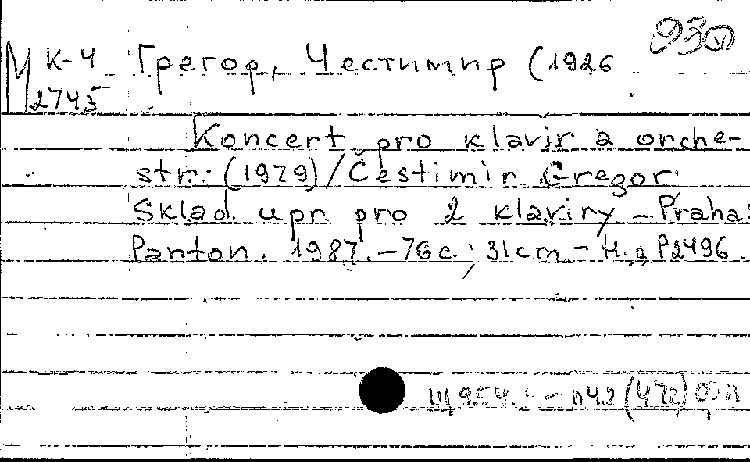 930
М К-4 Грегор, Честимир (1926
2745
Koncert pro klavir a orche-
str: (1979) / Čestimir Gregor
Sklad. upr. pro 2 klaviry - Praha:
Panton. 1987. - 76 c.; 31 cm - Н.д. P2496.
Щ954. - п42(4Че)